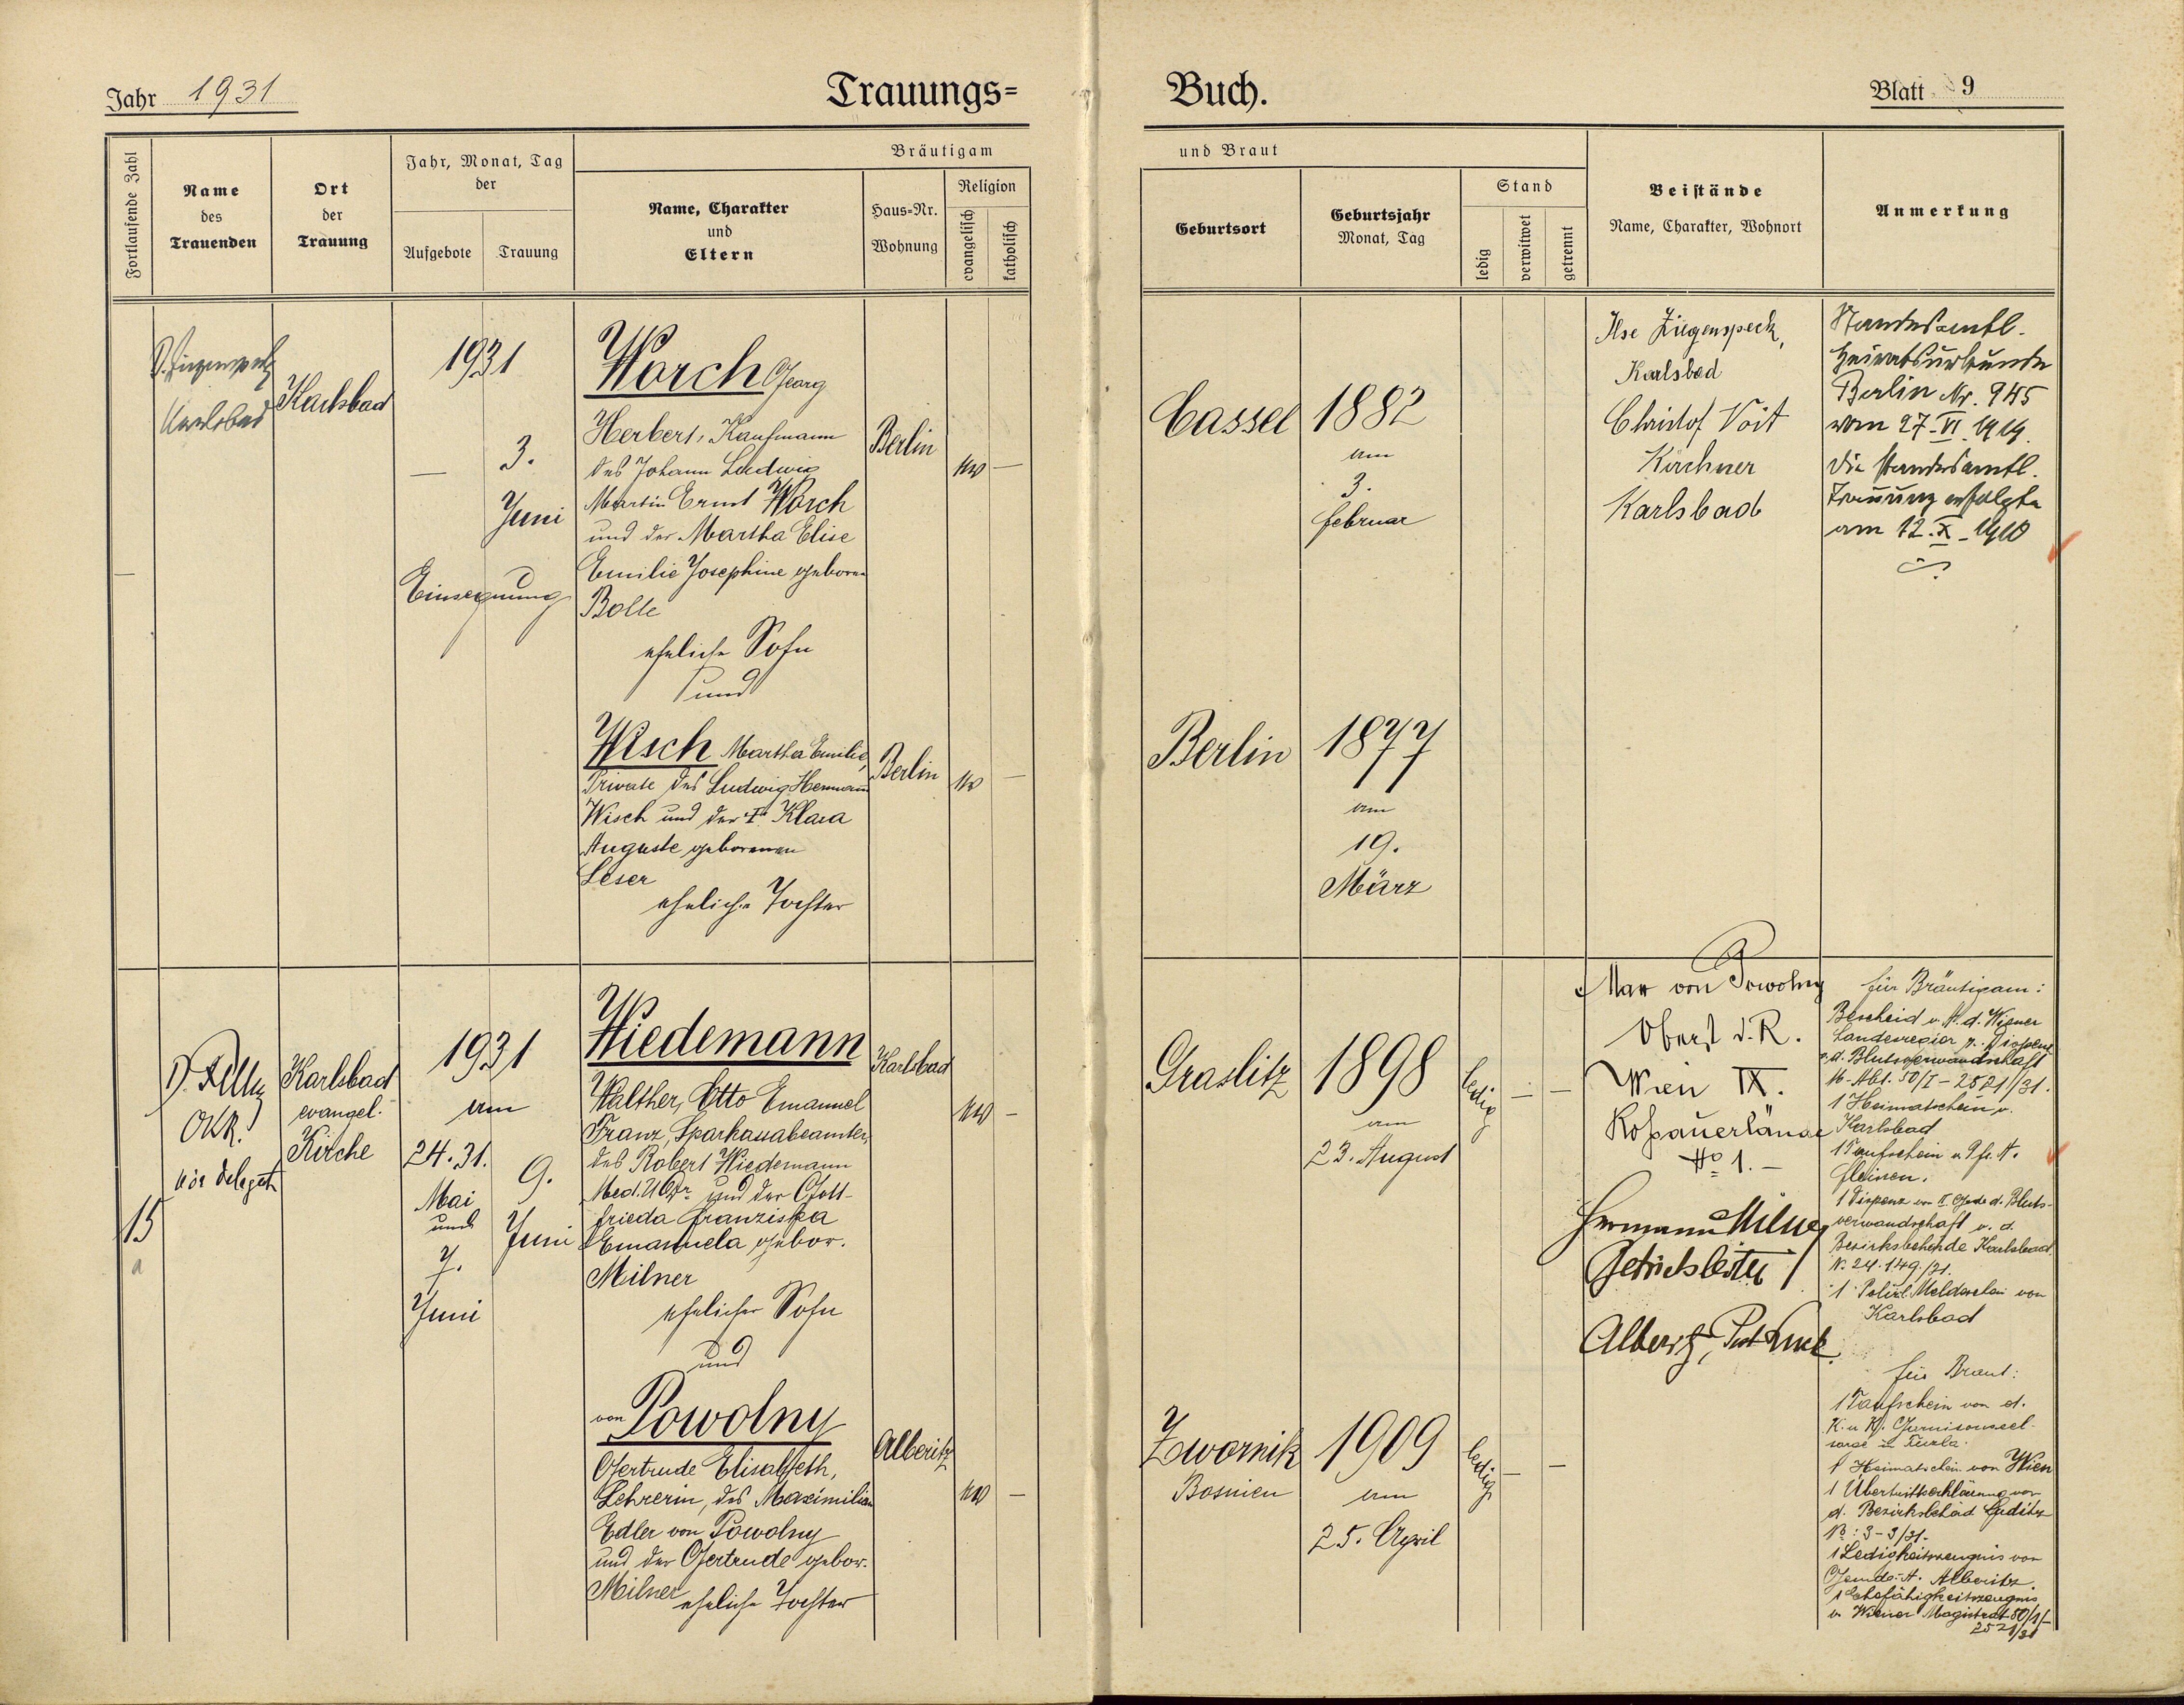 Jahr 1931
Trauungs=
Buch.
Blatt 9
Fortlaufende Zahl
Name
des
Trauenden
Ort
der
Trauung
Jahr, Monat, Tag
der
Aufgebote
Trauung
Bräutigam
Name, Charakter
und
Eltern
Haus=Nr.
Wohnung
Religion
evangelisch
katholisch
und Braut
Geburtsort
Geburtsjahr
Monat, Tag
Stand
ledig
verwitwet
getrennt
Beistände
Name, Charakter, Wohnort
Anmerkung
Karlsbad
Karlsbad
1931
—
3.
Juni
Einsegnung
Worch Georg
Herbert, Kaufmann
des Johann Ludwig
Martin Ernst Worch
und der Martha Elise
Emilie Josephine geboren
Bolle
eheliche Sohn
und
Wisch Martha Emilie,
Private des Ludwig Hermann
Wisch und der Klara
Auguste geborenen
Leser
eheliche Tochter
Berlin
—
Berlin
—
Cassel
1882
am
3.
februar
Berlin
1877
am
19.
März
Ilse Ziegenspeck,
Karlsbad
Christof Voit
Kirchner
Karlsbad
Standesamtl.
Heiratsurkunde
Berlin Nr. 945
vom 27. VI. 1919.
die standesamtl.
Trauung erfolgte
am 12. X. 1910
15
a
OKR.
Karlsbad
evangel.
Kirche
1931
am
24. 31.
Mai
und
7.
Juni
9.
Juni
Wiedemann
Walther, Otto Emanuel
Franz, Sparkassabeamter,
des Robert Wiedemann
Med. U Dr. und der Gott-
frieda Franziska
Emanuela gebor.
Milner
ehelicher Sohn
und
von Powolny
Gertrude Elisabeth,
Lehrerin, des Maximilian
Edler von Powolny
und der Gertrude gebor.
Milner eheliche Tochter
Karlsbad
—
Alberitz
—
Graslitz
1898
am
23. August
ledig
—
—
Zwornik
Bosnien
1909
am
25. April
ledig
—
—
Max von Powolny
Oberst d. R.
Wien IX.
Roßauerlände
No 1.—
Hermann Milner
Alberitz, Post
für Bräutigam:
Bescheid v. A. d. Wiener
v. d. Blutsverwandschaft
16-Abt. 50/I - 2521/31.
1 Heimatschein v.
Karlsbad
1 Taufschein v. Pfr. A.
1 Dispenz von II. Grade d. Bluts-
verwandschaft v. d.
Bezirksbehörde Karlsbad
N. 24.149/31.
Karlsbad
für Braut:
1 Taufschein von d.
K. u K. Garnisonseel-
sorge
1 Heimatschein von Wien
1 Übertrittserklärung von
d. Bezirksbehörd Luditz
N: 3-3/31.
1 Ledigkeitszeugnis von
Gemde.-A. Alberitz.
1 Ehefähigkeitszeugnis
v. Wiener Magistrat 50/1/-
2521/31